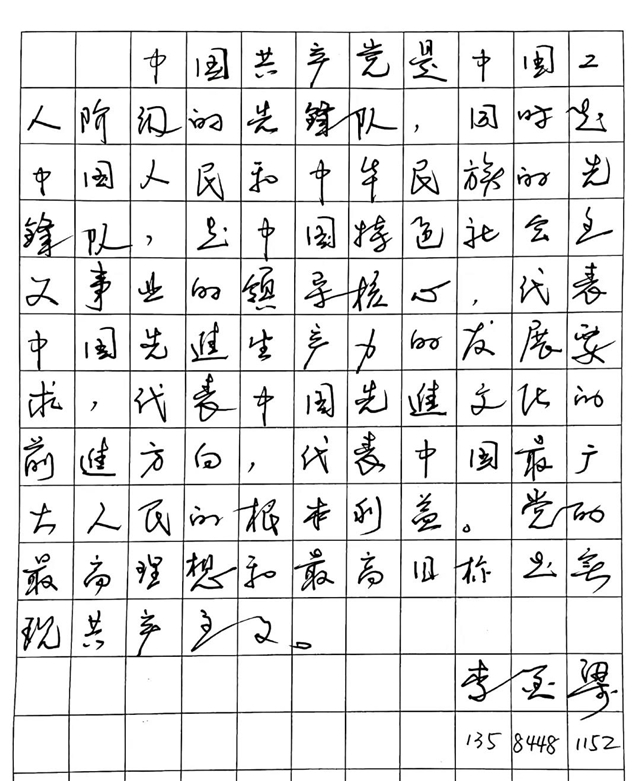 中国共产党是中国工
人阶级的先鋒队，同时是
中国人民和中华民族的先
鋒队，是中国特色社会主
义事业的領导核心，代表
中国先進生产力的发展要
求，代表中国先進文化的
前進方向，代表中国最广
大人民的根本利益。党的
最高理想和最高目标是实
现共产主义。
李梁
135 8448 1152